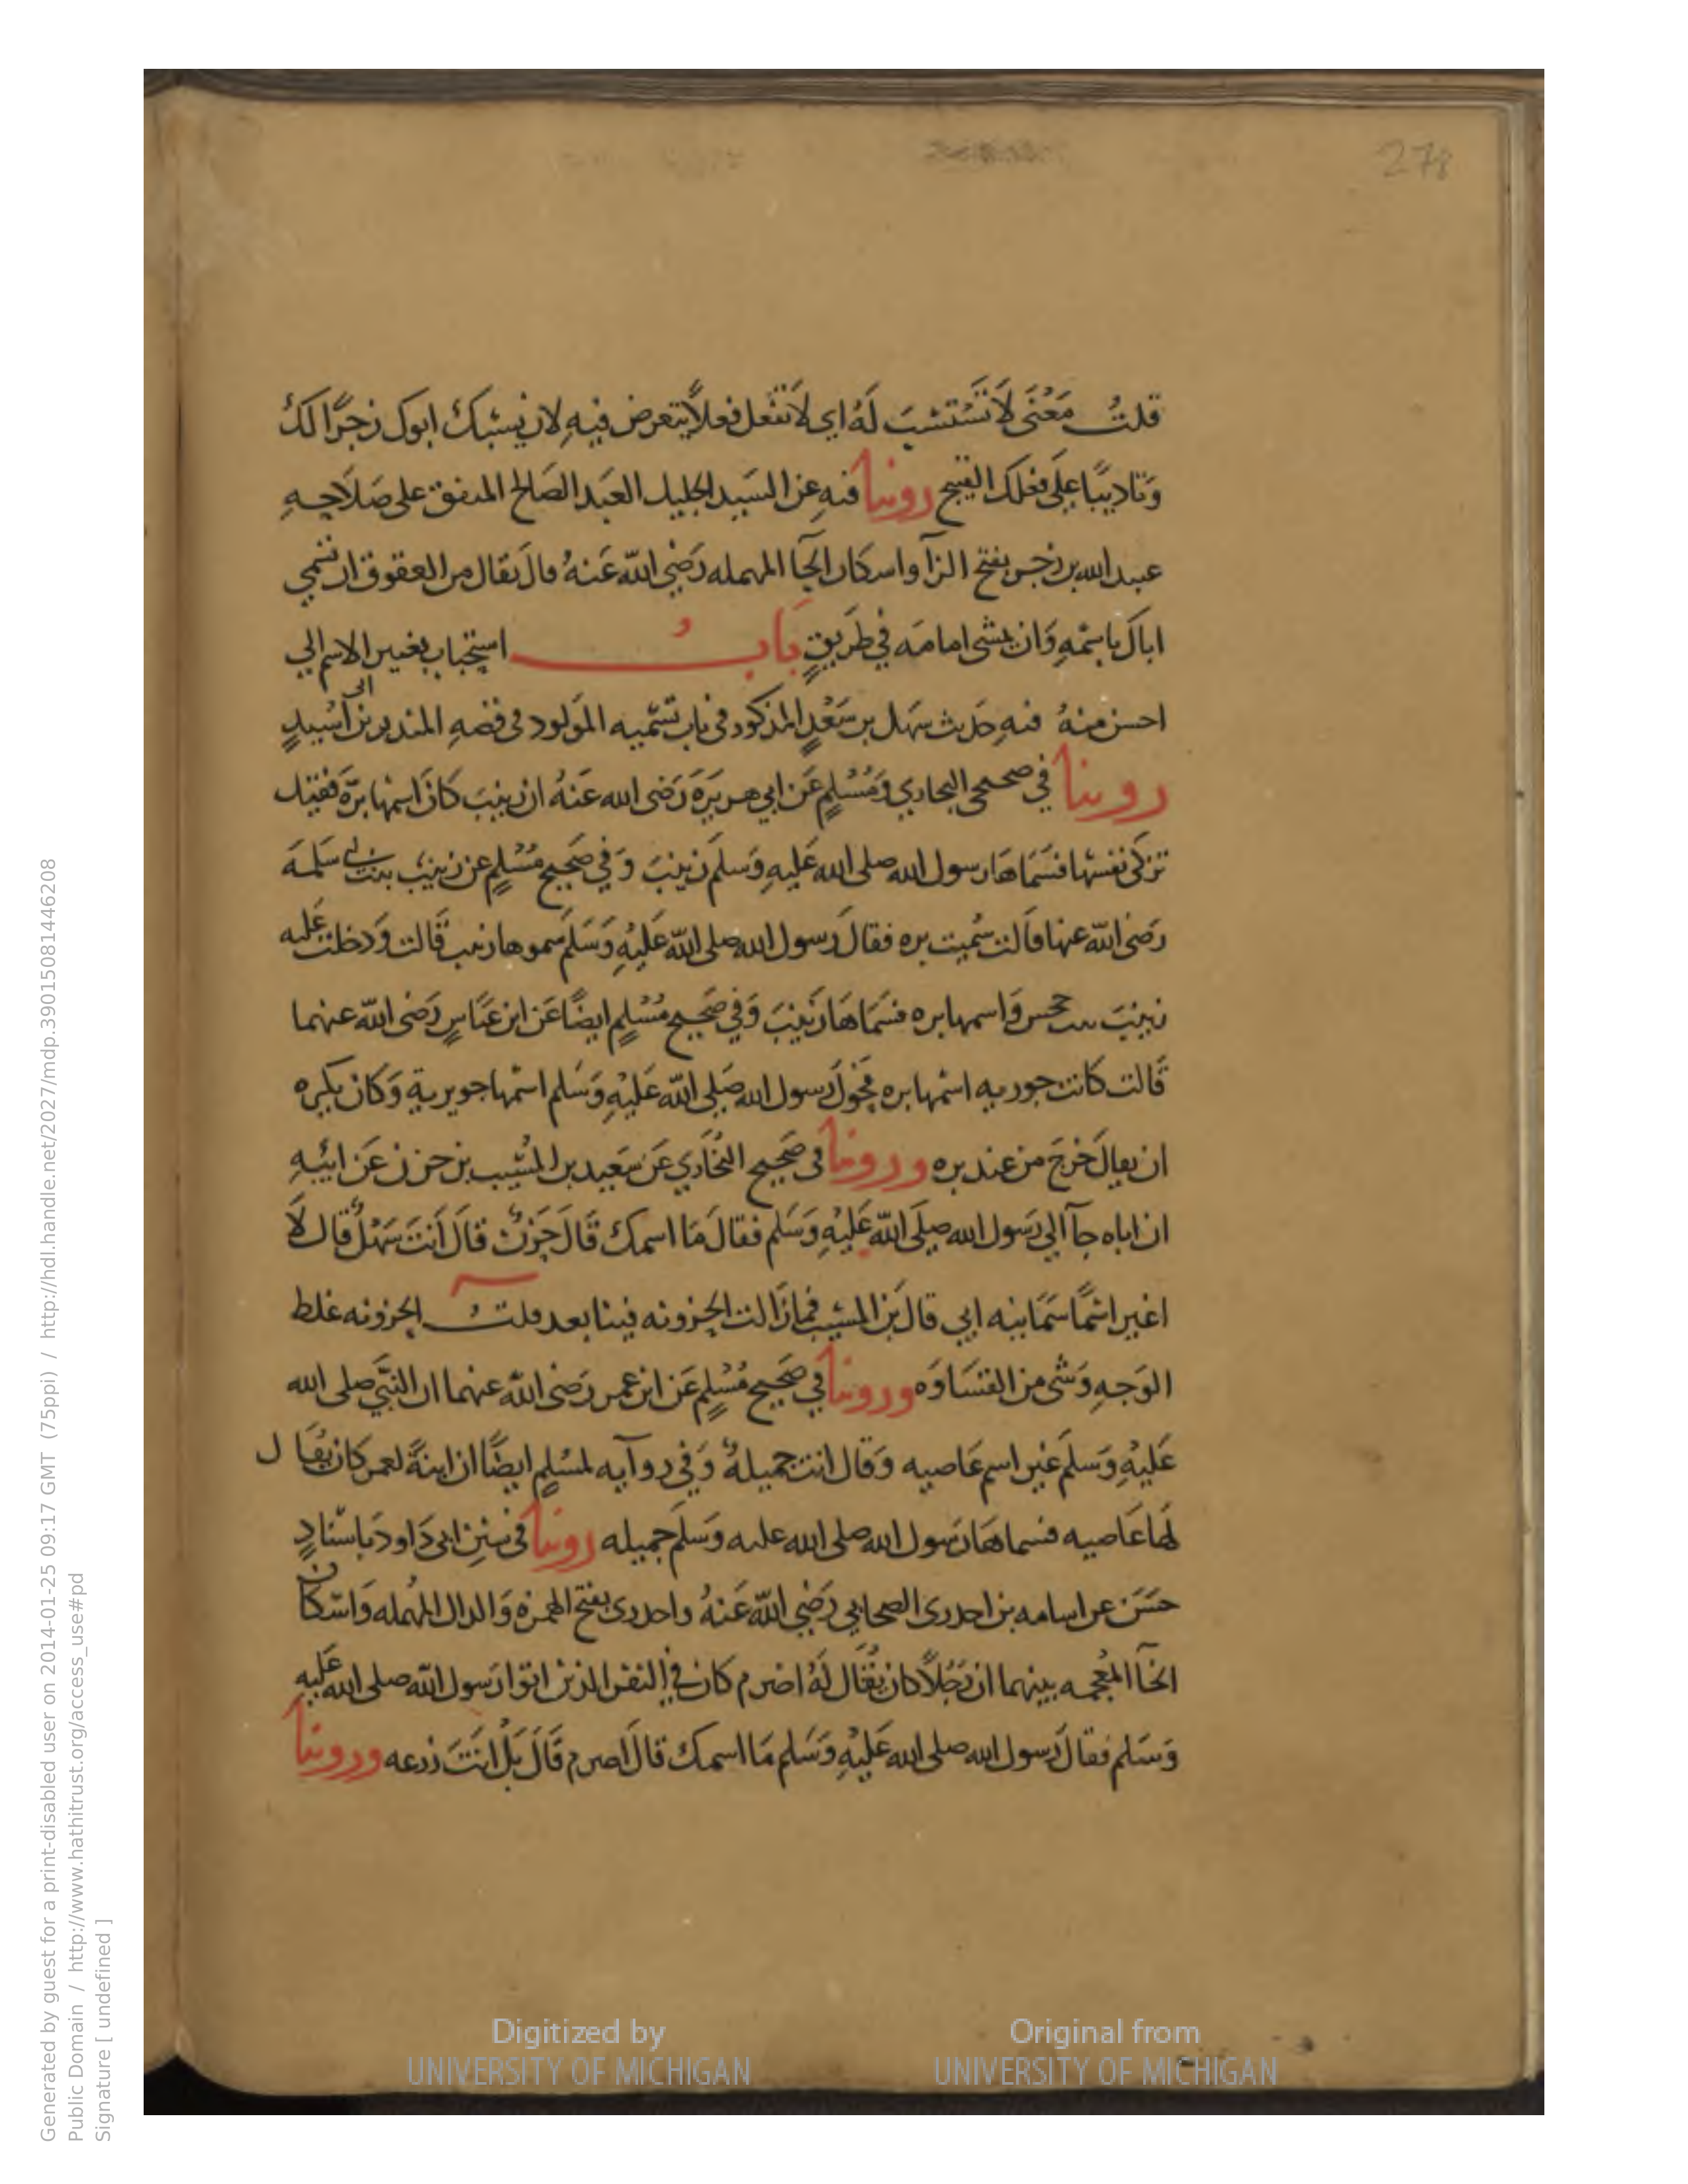 278
قلتُ مَعْنَى لَا تَسْتَسْتِبَ لَهُ اي لَا تفعل فعلاً يتعرض فيهِ لان يَسُبكَ ابوكَ زجرًا لَكَ
وَتاديبًا علَى فعلكَ القبيح روينا فيهِ عن السَيد الجليل العَبد الصَالح المتفق على صَلاحِهِ
عبيد الله بن زحر بفتح الزآ واسكان الحآ المهمله رَضِيَ اللّه عَنهُ قالَ يقال من العقوق ان تسمي
اباكَ باسْمِهِ وَان تمشي امامَه في طَريقٍ بَابُ استحباب تغيير الاسم الي
احسن منهُ فيهِ حَديث سَهل بن سَعْدٍ المذكور في باب تَسْميه المَولود في قصهِ المنذر بن ابي اسَيدٍ
روينا في صحيحي البخاري وَمُسْلِمٍ عَن ابي هريرَة رَضى الله عَنهُ ان زينبَ كانَ اسْمها برَّة فقيل
تزكى نفسَها فسَمَاهَا رسول الله صلى الله عَليهِ وَسلم زينبَ وَفي صَحِيح مُسْلِمٍ عن زينبَ بنت ابي سَلمَة
رَضى اللّه عنها قَالت سُميت بره فقالَ رَسول الله صلى اللّه عَليْهِ وَسَلَم سموها زينب قَالت وَدخلت عَليه
زينبَ بنت جحش وَاسمها بره فسَمَاهَا زَينبَ وَفي صَحِيح مُسْلِمٍ ايضًا عَن ابن عَبَاسٍ رَضى اللّه عنهما
قَالت كانت جويريه اسْمها بره فحَولَ رَسول الله صَلى اللّه عَليْهِ وَسَلم اسْمها جويرية وَكان يكره
ان يقالَ خَرجَ من عند بره وروينا في صَحِيح البُخَاري عَن سَعيد بن المسَيب بن حزن عَن ابيْهِ
ان اباه جآ الي رَسول الله صلَى اللّه عَليْهِ وَسَلم فقالَ مَا اسمكَ قَالَ حَزنٌ قالَ اَنتَ سَهْلٌ قال لَا
اغير اسْمًا سَمَانيه ابي قالَ بن المسَيب فمازَالت الحزونه فينا بعد قلتُ الحزونه غلظ
الوَجهِ وَشَى من القسَاوَه وروينا في صَحِيح مُسْلِمٍ عَن ابن عمر رَضى اللّه عنهما ان النَبَّي صلى الله
عَليْهِ وَسَلَم غَير اسم عَاصيه وَقال انت جَميلهُ وَفي روآيه لمسْلمٍ ايضًا ان ابنةً لعمر كان يُقَال
لَهَا عَاصيه فسماهَا رَسول الله صلى الله عليه وَسَلَم جميله روينا في سُننِ ابى دَاود بَاسْنادٍ
حَسَن عن اسامه بن اخدرى الصحابي رَضِي اللّه عَنهُ واخدرى بفتح الهمزه وَالدال المهمله وَاسْكان
الخآ المُعجمه بينهما ان رَجُلاً كان يُقَال لَهُ اصرم كان في النفر الذين اتوا رَسول اللّه صلى الله عَليهِ
وَسَلم فقالَ رَسول الله صلى الله عَليْهِ وَسَلم مَا اسمكَ قالَ اصرم قَالَ بَلْ انتَ زرعه وروينا
Digitized by
UNIVERSITY OF MICHIGAN
Original from
UNIVERSITY OF MICHIGAN
Generated by guest for a print-disabled user on 2014-01-25 09:17 GMT (75ppi) / http://hdl.handle.net/2027/mdp.39015081446208
Public Domain / http://www.hathitrust.org/access_use#pd
Signature [ undefined ]